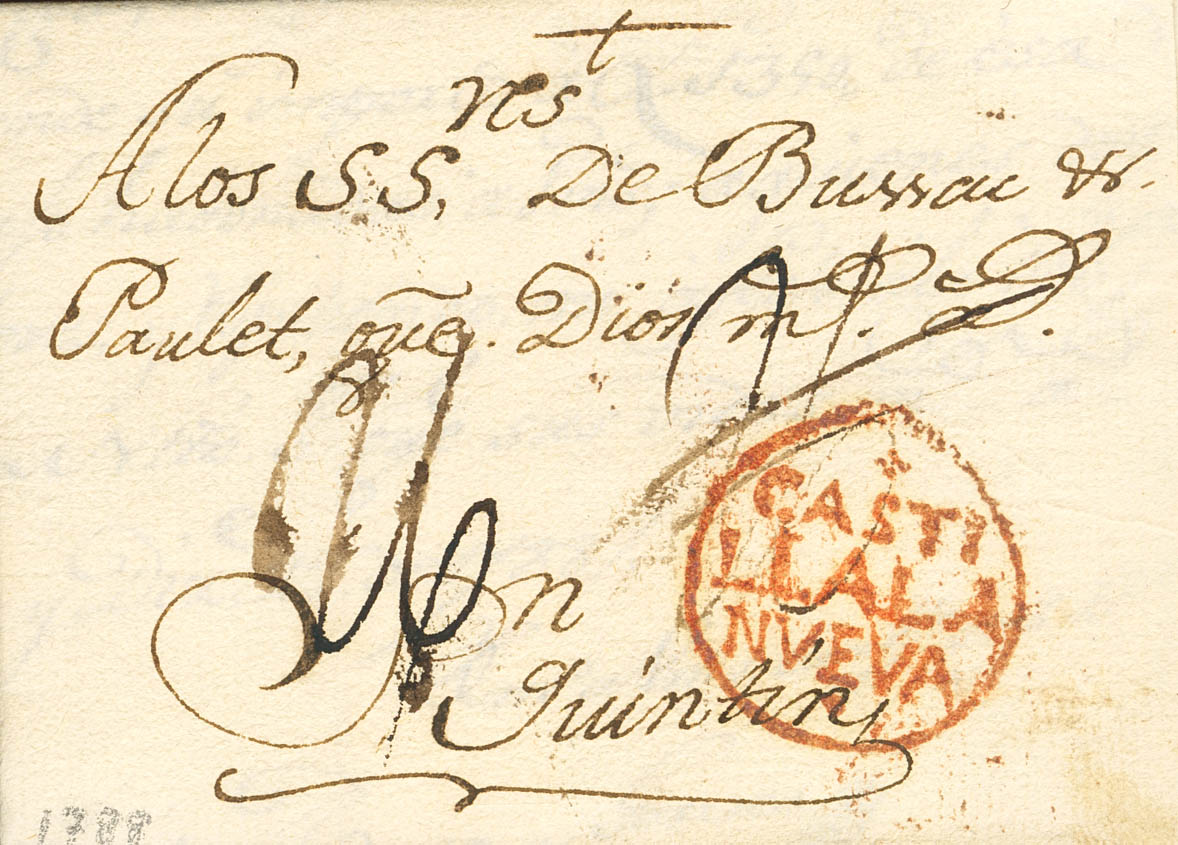 A los SS.res De Bussac &.
Paulet, que Dios m.
Sn
Quintin
CASTI
LLALA
NUEVA
1788